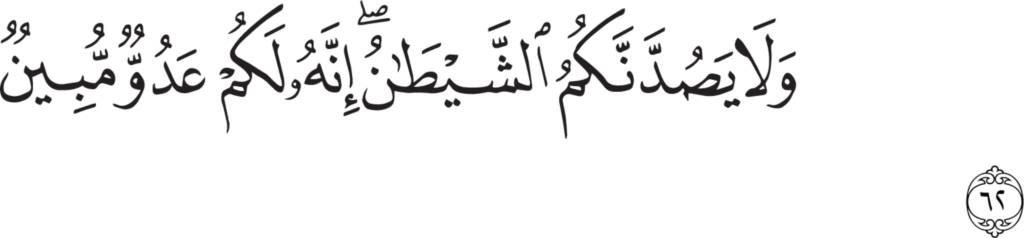 وَلَا يَصُدَّنَّكُمُ ٱلشَّيْطَٰنُ ۖ إِنَّهُۥ لَكُمْ عَدُوٌّ مُّبِينٌ
٦٢